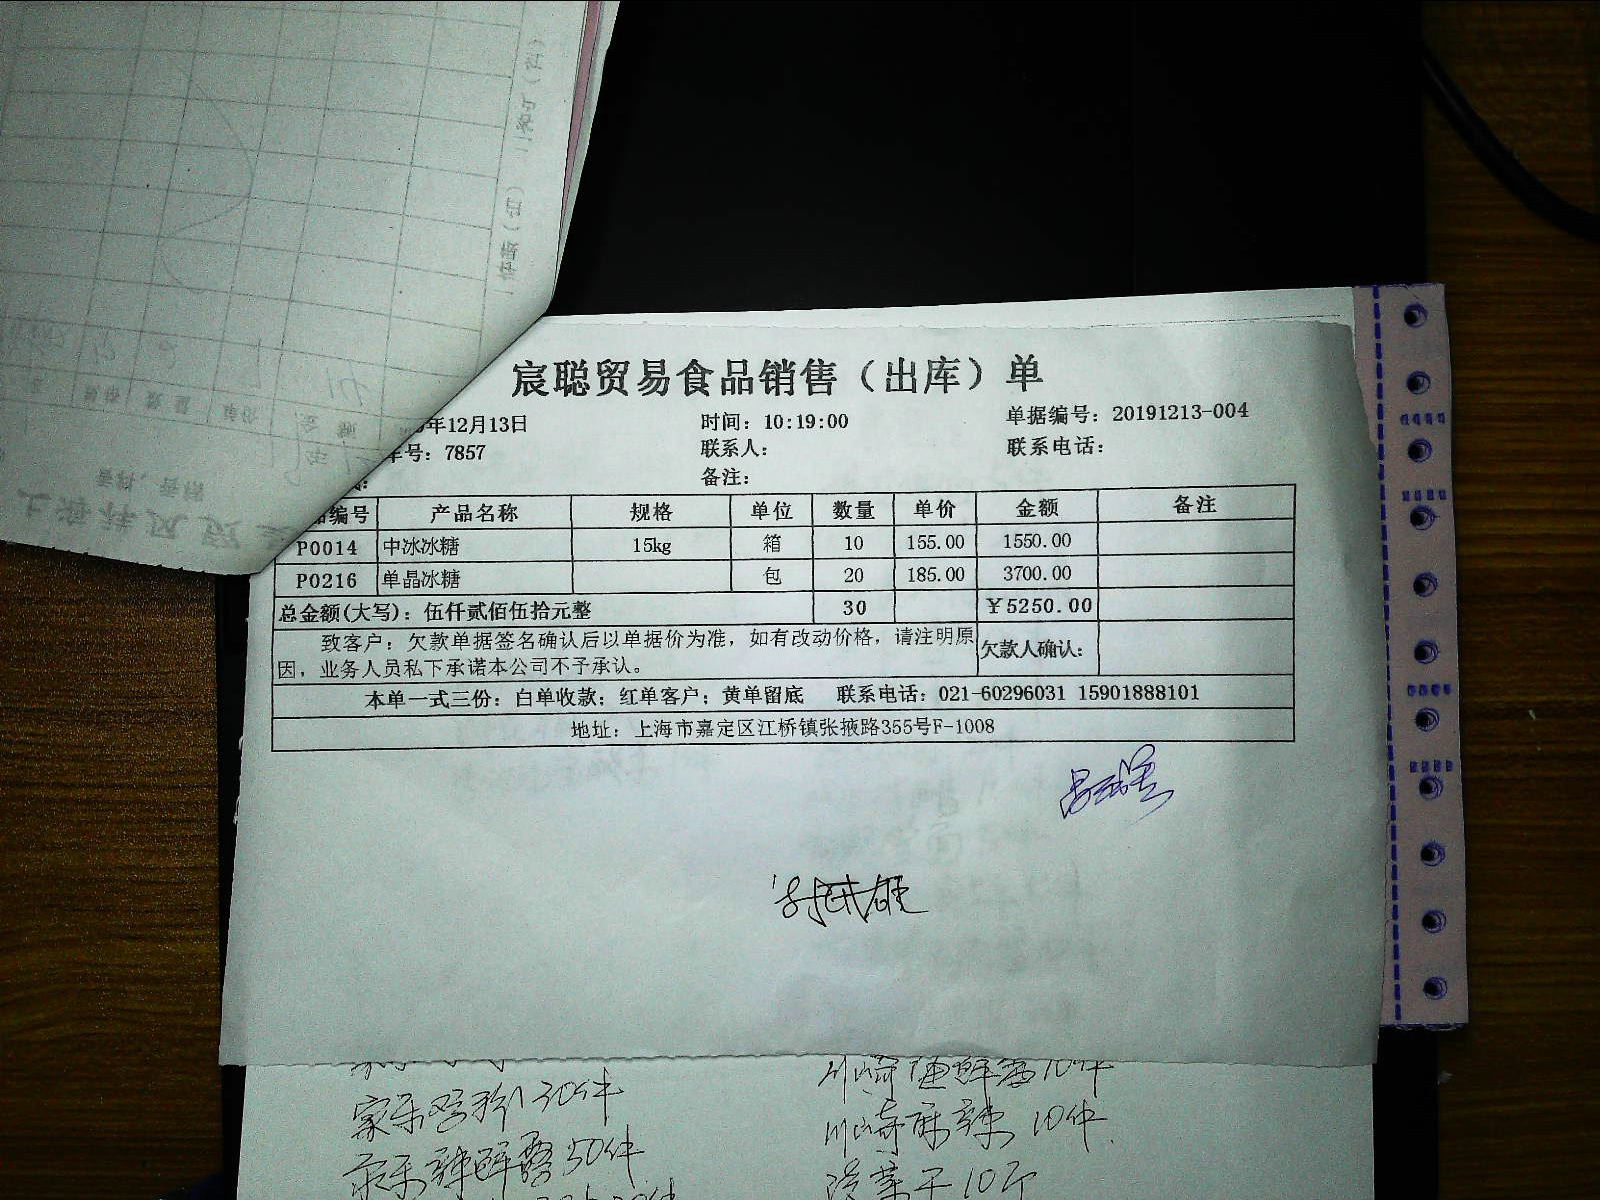 宸聪贸易食品销售（出库）单
年12月13日 时间：10:19:00 单据编号：20191213-004
车号：7857 联系人： 联系电话：
备注：
编号 产品名称 规格 单位 数量 单价 金额 备注
P0014 中冰冰糖 15kg 箱 10 155.00 1550.00
P0216 单晶冰糖 包 20 185.00 3700.00
总金额(大写)：伍仟贰佰伍拾元整 30 ￥5250.00
致客户：欠款单据签名确认后以单据价为准，如有改动价格，请注明原
因，业务人员私下承诺本公司不予承认。
欠款人确认：
本单一式三份：白单收款；红单客户；黄单留底 联系电话：021-60296031 15901888101
地址：上海市嘉定区江桥镇张掖路355号F-1008
家乐鸡粉30件
家乐辣鲜露50件
10件
川崎麻辣 10件
10斤